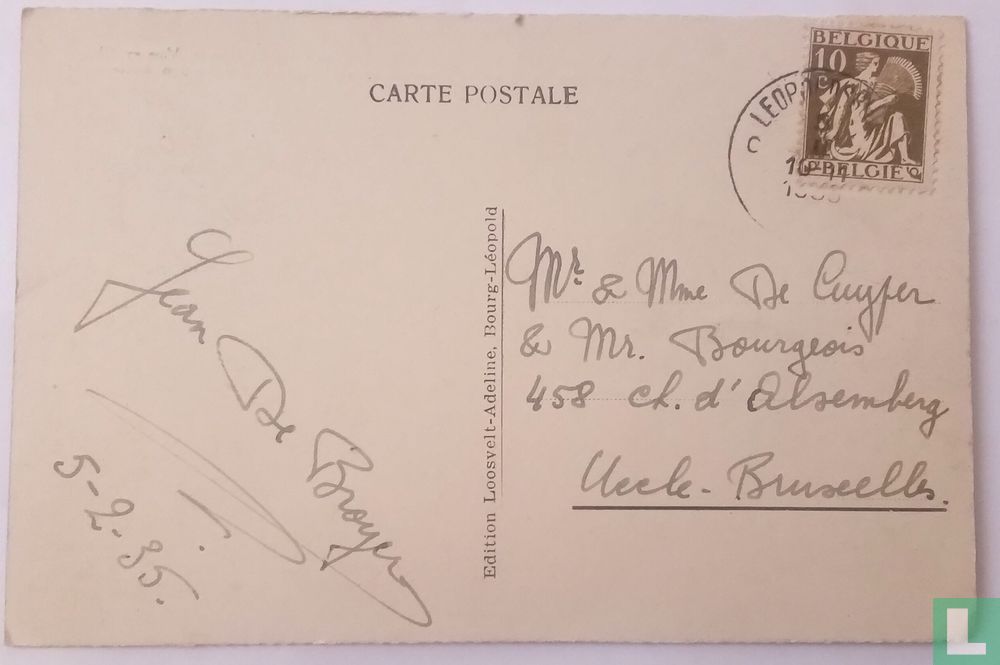 CARTE POSTALE
BELGIQUE
10
BELGIE
Jean De Broyer
5-2-35.
Edition Loosvelt-Adeline, Bourg-Léopold
Mr. & Mme De Cuyper
& Mr. Bourgeois
458 ch. d'Alsemberg
Uccle-Bruxelles.
L